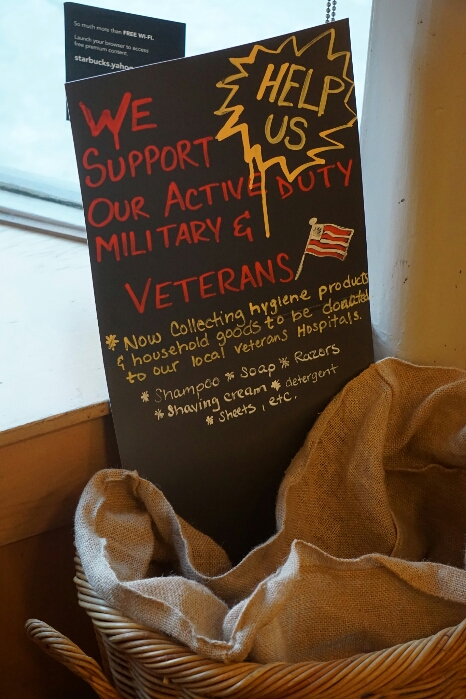 So much more than FREE WI-FI.
Launch your browser to access
free premium content.
starbucks.yahoo
HELP
US
WE
SUPPORT
OUR ACTIVE DUTY
MILITARY &
VETERANS
* Now Collecting hygiene products
& household goods to be donated
to our local veterans Hospitals.
* Shampoo * Soap * Razors
* Shaving cream * detergent
* Sheets, etc.